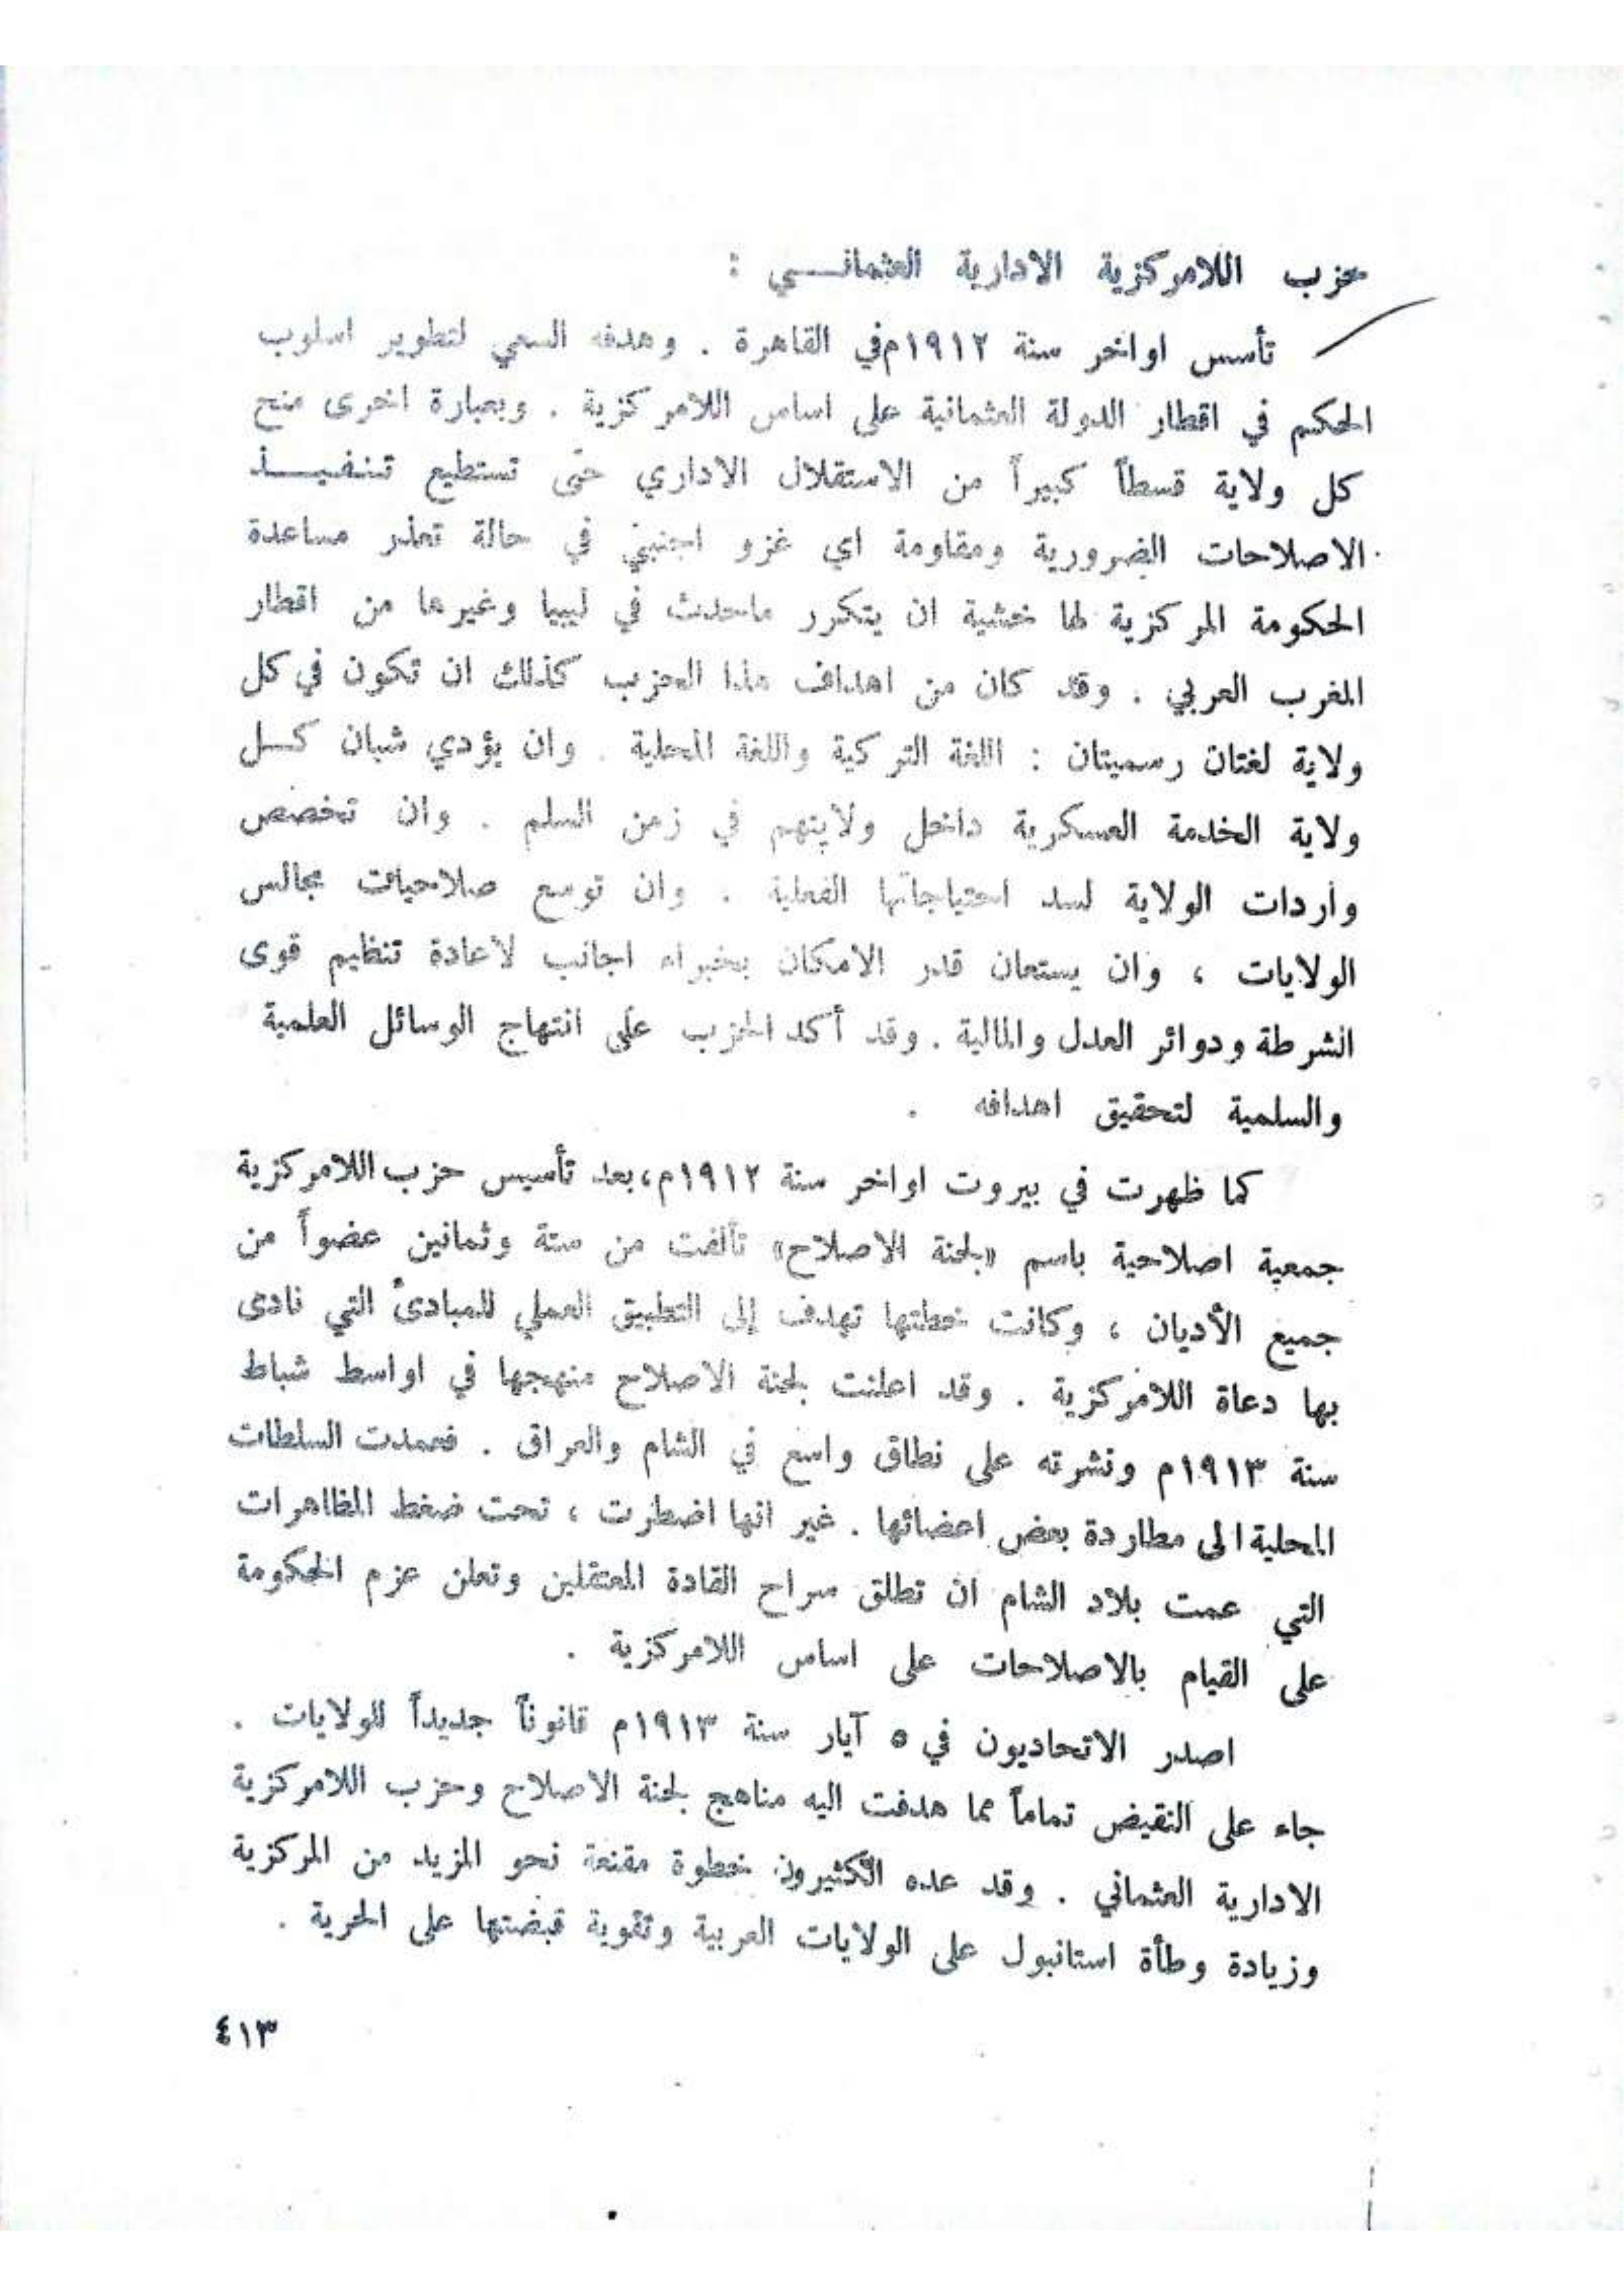 حزب اللامركزية الادارية العثمانــي :
تأسس اواخر سنة ١٩١٢م في القاهرة . وهدفه السعي لتطوير اسلوب
الحكم في اقطار الدولة العثمانية على اساس اللامركزية . وبعبارة اخرى منح
كل ولاية قسطاً كبيراً من الاستقلال الاداري حتى تستطيع تنفيــذ
الاصلاحات الضرورية ومقاومة اي غزو اجنبي في حالة تعذر مساعدة
الحكومة المركزية لها خشية ان يتكرر ماحدث في ليبيا وغيرها من اقطار
المغرب العربي . وقد كان من اهداف هذا الحزب كذلك ان تكون في كل
ولاية لغتان رسميتان : اللغة التركية واللغة المحلية . وان يؤدي شبان كــل
ولاية الخدمة العسكرية داخل ولايتهم في زمن السلم . وان تخصص
واردات الولاية لسد احتياجاتها الفعلية . وان توسع صلاحيات مجالس
الولايات ، وان يستعان قدر الامكان بخبراء اجانب لاعادة تنظيم قوى
الشرطة ودوائر العدل والمالية . وقد أكد الحزب على انتهاج الوسائل العلمية
والسلمية لتحقيق اهدافه .
كما ظهرت في بيروت اواخر سنة ١٩١٢م، بعد تأسيس حزب اللامركزية
جمعية اصلاحية باسم «لجنة الاصلاح» تألفت من ستة وثمانين عضواً من
جميع الأديان ، وكانت خطتها تهدف إلى التطبيق العملي للمبادئ التي نادى
بها دعاة اللامركزية . وقد اعلنت لجنة الاصلاح منهجها في اواسط شباط
سنة ١٩١٣م ونشرته على نطاق واسع في الشام والعراق . فعمدت السلطات
المحلية الى مطاردة بعض اعضائها . غير انها اضطرت ، تحت ضغط المظاهرات
التي عمت بلاد الشام ان تطلق سراح القادة المعتقلين وتعلن عزم الحكومة
على القيام بالاصلاحات على اساس اللامركزية .
اصدر الاتحاديون في ٥ آيار سنة ١٩١٣م قانوناً جديداً للولايات .
جاء على النقيض تماماً مما هدفت اليه مناهج لجنة الاصلاح وحزب اللامركزية
الادارية العثماني . وقد عده الكثيرون خطوة مقنعة نحو المزيد من المركزية
وزيادة وطأة استانبول على الولايات العربية وتقوية قبضتها على الحرية .
٤١٣